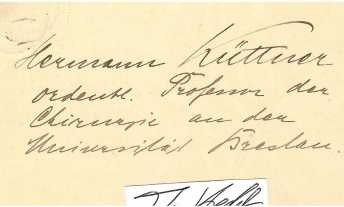 Hermann Küttner
ordentl. Professor der
Chirurgie an der
Universität Breslau.